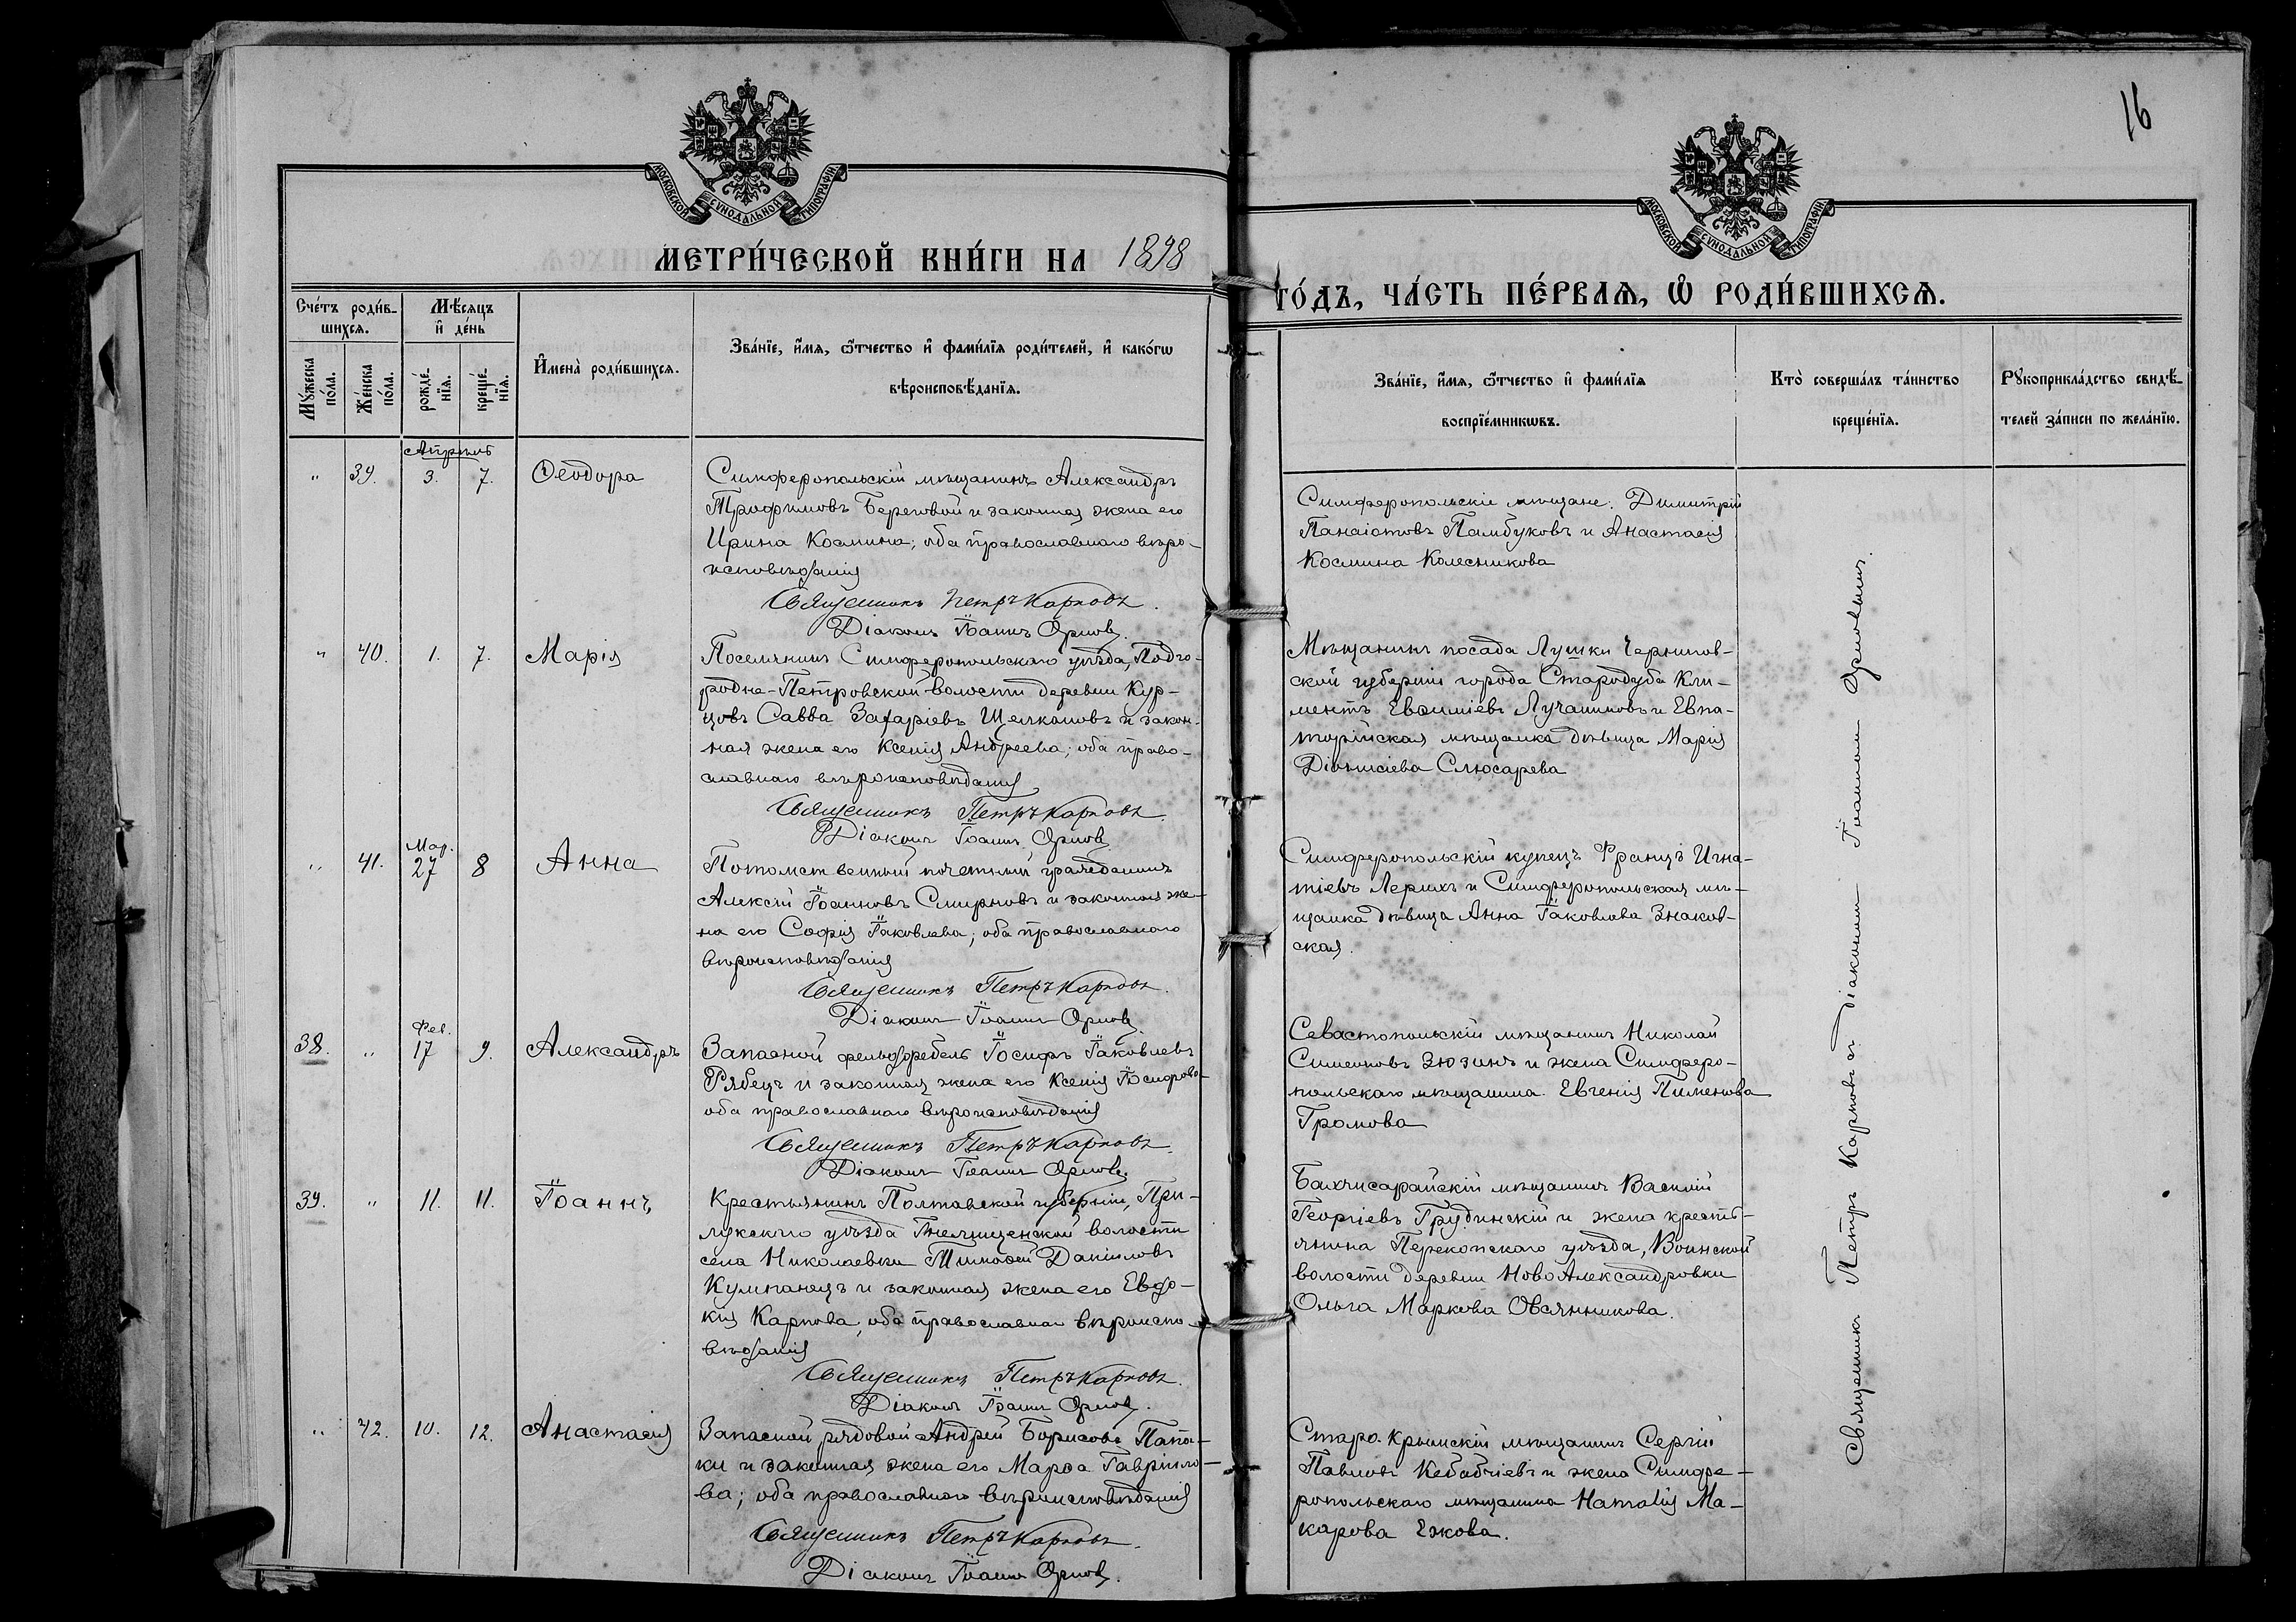 16
МОСКОВСКОЙ СУНОДАЛЬНОЙ ТИПОГРАФІИ
МОСКОВСКОЙ СУНОДАЛЬНОЙ ТИПОГРАФІИ
МЕТРИ́ЧЕСКОЙ КНИ́ГИ НА 1898
ГО́ДЪ, ЧА́СТЬ ПЕ́РВАѦ, Ѡ҆ РОДИ́ВШИХСѦ.
Сче́тъ роди́в-
шихсѧ.
Мѣ́сѧцъ
и҆ де́нь
Мꙋ́жеска
по́ла.
Же́нска
по́ла.
рожде́-
нїѧ.
креще́-
нїѧ.
И҆мена̀ роди́вшихсѧ.
Зва́нїе, и҆́мѧ, ѻ҆́тчество и҆ фами́лїѧ роди́телей, и҆ како́гѡ
вѣроисповѣ́данїѧ.
Зва́нїе, и҆́мѧ, ѻ҆́тчество и҆ фами́лїѧ
воспрїе́мникѡвъ.
Кто̀ соверша́лъ та́инство
креще́нїѧ.
Рꙋкоприкла́дство свидѣ́-
телей за́писи по жела́нїю.
Апрѣль
" 39. 3. 7. Ѳеодора
Симферопольскій мѣщанинъ Александръ
Трофимовъ Береговой и законная жена его
Ирина Космина; оба православнаго вѣро-
исповѣданія
Священникъ Петръ Карповъ.
Діаконъ Іоаннъ Орловъ.
Симферопольскіе мѣщане: Димитрій
Панаіотовъ Памбуковъ и Анастасія
Космина Колесникова
" 40. 1. 7. Марія
Поселянинъ Симферопольскаго уѣзда, Подго-
родне-Петровской волости деревни Кур-
цовъ Савва Захаріевъ Щелкановъ и закон-
ная жена его Ксенія Андреева; оба право-
славнаго вѣроисповѣданія
Священникъ Петръ Карповъ.
Діаконъ Іоаннъ Орловъ
Мѣщанинъ посада Лушки Чернигов-
ской губерніи города Стародуба Кли-
ментъ Евѳиміевъ Лучаниновъ и Евпа-
торійская мѣщанка дѣвица Марія
Діонисіева Слюсарева
Мар.
" 41. 27 8 Анна
Потомственный почетный гражданинъ
Алексій Іоанновъ Смирновъ и законная же-
на его Софія Іаковлева; оба православнаго
вѣроисповѣданія
Священникъ Петръ Карповъ.
Діаконъ Іоаннъ Орловъ
Симферопольскій купецъ Францъ Игна-
тіевъ Лерихъ и Симферопольская мѣ-
щанка дѣвица Анна Іаковлева Знаков-
ская.
Фев.
38. " 17 9. Александръ
Запасной фельдфебель Іосифъ Іаковлевъ
Рябецъ и законная жена его Ксенія Іосифова-
оба православнаго вѣроисповѣданія
Священникъ Петръ Карповъ.
Діаконъ Іоаннъ Орловъ.
Севастопольскій мѣщанинъ Николай
Симеоновъ Зюзинъ и жена Симферо-
польскаго мѣщанина Евгенія Пименова
Громова
39. " 11. 11. Іоаннъ
Крестьянинъ Полтавской губерніи, При-
лукскаго уѣзда волости
села Николаевки Тимоѳей Даніиловъ
Кулпанецъ и законная жена его Евдо-
кія Карпова, оба православнаго вѣроиспо-
вѣданія
Священникъ Петръ Карповъ.
Діаконъ Іоаннъ Орловъ.
Бахчисарайскій мѣщанинъ Василій
Георгіевъ Грудинскій и жена кресть-
янина Перекопскаго уѣзда, Воинской
волости деревни НовоАлександровки
Ольга Маркова Овсянникова.
" 42. 10. 12. Анастасія
Запасной рядовой Андрей Борисовъ Папа-
ки и законная жена его Марѳа Гавріило-
ва; оба православнаго вѣроисповѣданія
Священникъ Петръ Карповъ.
Діаконъ Іоаннъ Орловъ.
Старо-Крымскій мѣщанинъ Сергій
Павловъ Кебабчіевъ и жена Симфе-
ропольскаго мѣщанина Наталія Ма-
карова Ежова.
Священникъ Петръ Карповъ съ діакономъ Іоанномъ Орловымъ.